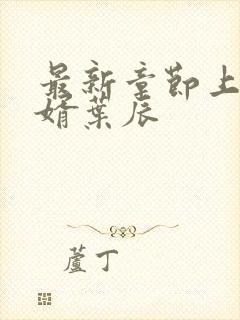 最新章节上
婿葉辰
蘆丁